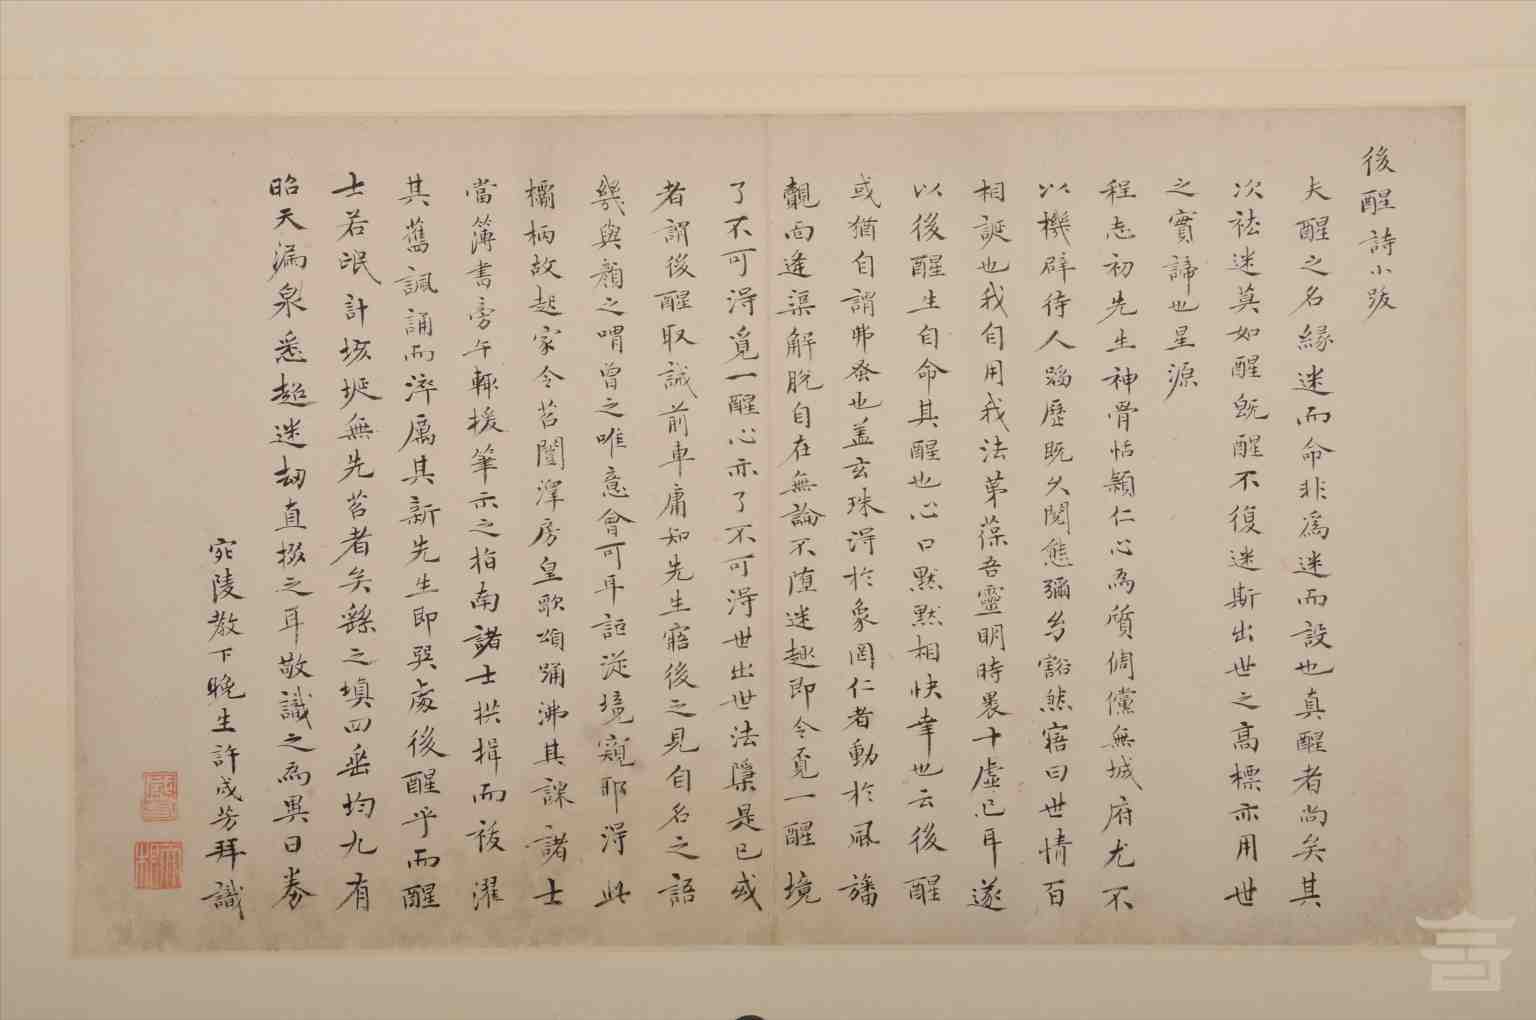 後醒詩小跋
夫醒之名緣迷而命非爲迷而設也真醒者尚矣其
次祛迷莫如醒既醒不復迷斯出世之高標亦用世
之實諦也星源
程志初先生神骨恬穎仁心為質倜儻無城府尤不
以機辟待人蹈歷既久閱態彌多豁然寤曰世情百
相誕也我自用我法第葆吾靈明時晨十虛已耳遂
以後醒生自命其醒也心口默默相快幸也云後醒
或猶自謂弗蚤也蓋玄珠淂於象罔仁者動於風旛
覿面逢渠解脫自在無論不墮迷趣即令覓一醒境
了不可淂覓一醒心亦了不可淂世出世法隱是已或
者謂後醒取誡前車庸知先生寤後之見自名之語
幾與顏之喟曾之唯意會可耳詎従境窺耶淂此
欛柄故起家令苕閩澤房皇歌頌踊沸其誄諸士
當簿書旁午輙援筆示之指南諸士拱揖而祓濯
其舊諷誦而淬厲其新先生即巽處後醒乎而醒
士若氓計垓埏無先苕者矣繇之塤四垂均九有
昭天漏泉悉超迷刼直掇之耳敬識之為異日券
宛陵教下晚生許成芳拜識